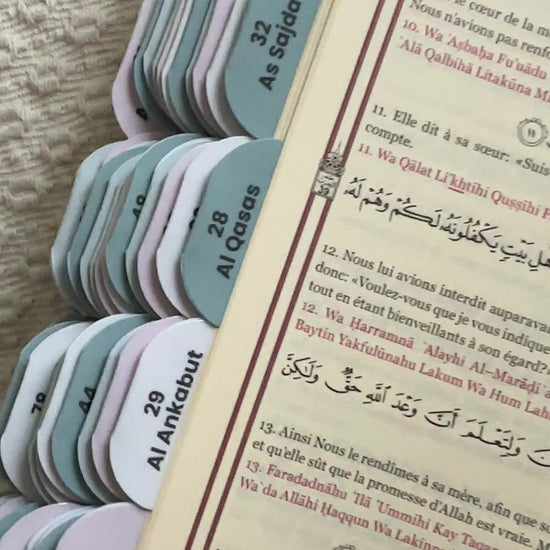 32
As Sajda
28
Al Qasas
48
29
Al Ankabut
44
79
le cœur de la m
Nous n'avions pas renf
10. Wa 'Aşbaḥa Fu'uādu
`Alá Qalbihā Litakūna Mi
11. Elle dit à sa sœur: «Suis
compte.
11. Wa Qālat Li'khtihi Quşşīhi F
هل بيت يكفلونه لكم وهم له
12. Nous lui avions interdit auparava
donc: «Voulez-vous que je vous indique
tout en étant bienveillants à son égard?»
12. Wa Ḥarramnā `Alayhi Al-Marāđi`
Baytin Yakfulūnahu Lakum Wa Hum Lah
ولتعلم أن وعد الله حق ولكن
13. Ainsi Nous le rendîmes à sa mère, afin que s
et qu'elle sût que la promesse d'Allah est vraie. M
13. Faradadnāhu 'Ilá 'Ummihi Kay Taqa
Wa`da Allāhi Ḥaqqun Wa Lakinn